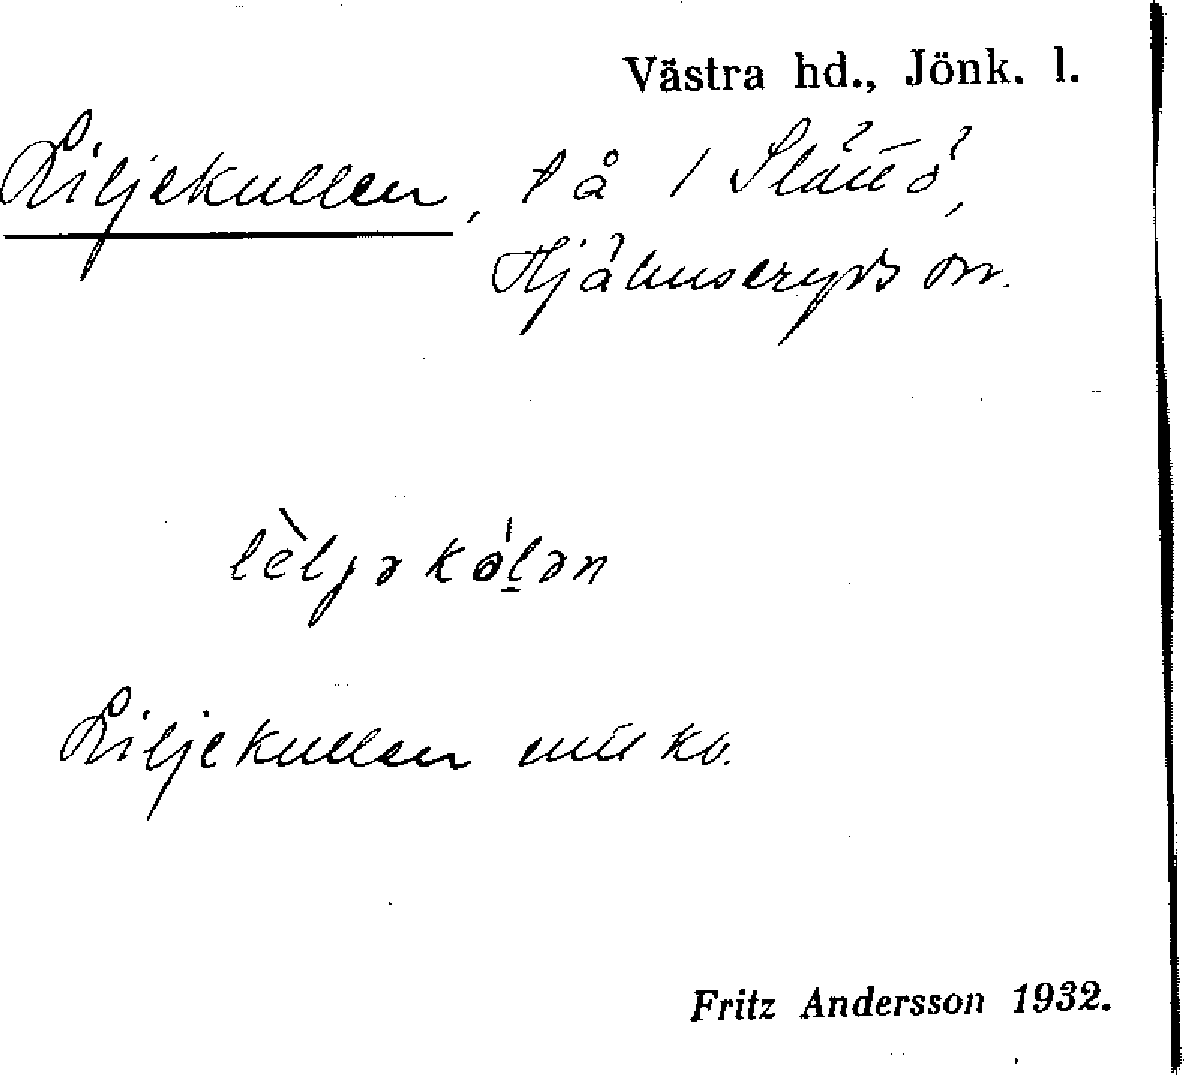 Västra hd., Jönk. l.
Liljekullen, lå / Slättö,
Hjälmseryds sn.
lèljəkólən
Liljekullen
Fritz Andersson 1932.